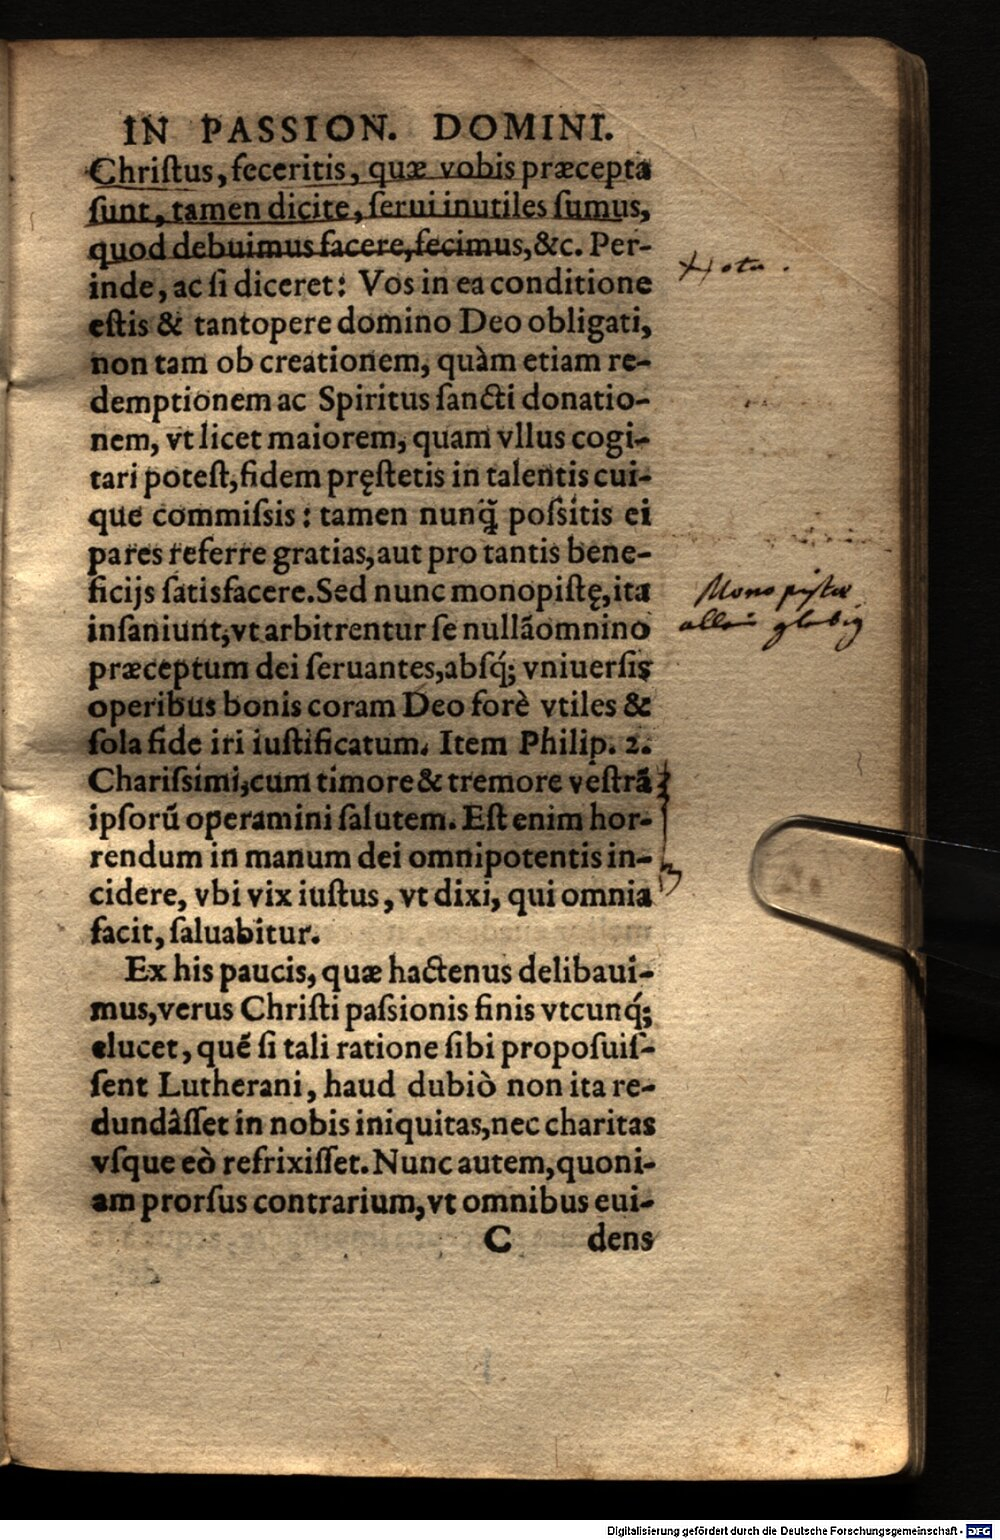 IN PASSION. DOMINI.
Chriſtus, feceritis, quæ vobis præcepta
ſunt, tamen dicite, ſerui inutiles ſumus,
quod debuimus facere, fecimus, &c. Per-
inde, ac ſi diceret: Vos in ea conditione
Nota.
eſtis & tantopere domino Deo obligati,
non tam ob creationem, quàm etiam re-
demptionem ac Spiritus ſancti donatio-
nem, vt licet maiorem, quam vllus cogi-
tari poteſt, fidem pręſtetis in talentis cui-
que commiſsis: tamen nunq̃ poſsitis ei
pares referre gratias, aut pro tantis bene-
ficijs ſatisfacere. Sed nunc monopiſtę, ita
Monopistae
inſaniunt, vt arbitrentur ſe nullã omnino
allein glebig
præceptum dei ſeruantes, abſq́; vniuerſis
operibus bonis coram Deo forè vtiles &
ſola fide iri iuſtificatum. Item Philip. 2.
Chariſsimi, cum timore & tremore veſtrã
ipſorũ operamini ſalutem. Eſt enim hor-
rendum in manum dei omnipotentis in-
cidere, vbi vix iuſtus, vt dixi, qui omnia
facit, ſaluabitur.
Ex his paucis, quæ hactenus delibaui-
mus, verus Chriſti paſsionis finis vtcunq́;
elucet, quẽ ſi tali ratione ſibi propoſuiſ-
ſent Lutherani, haud dubiò non ita re-
dundâſſet in nobis iniquitas, nec charitas
vſque eò refrixiſſet. Nunc autem, quoni-
am prorſus contrarium, vt omnibus eui-
C dens
Digitalisierung gefördert durch die Deutsche Forschungsgemeinschaft - DFG